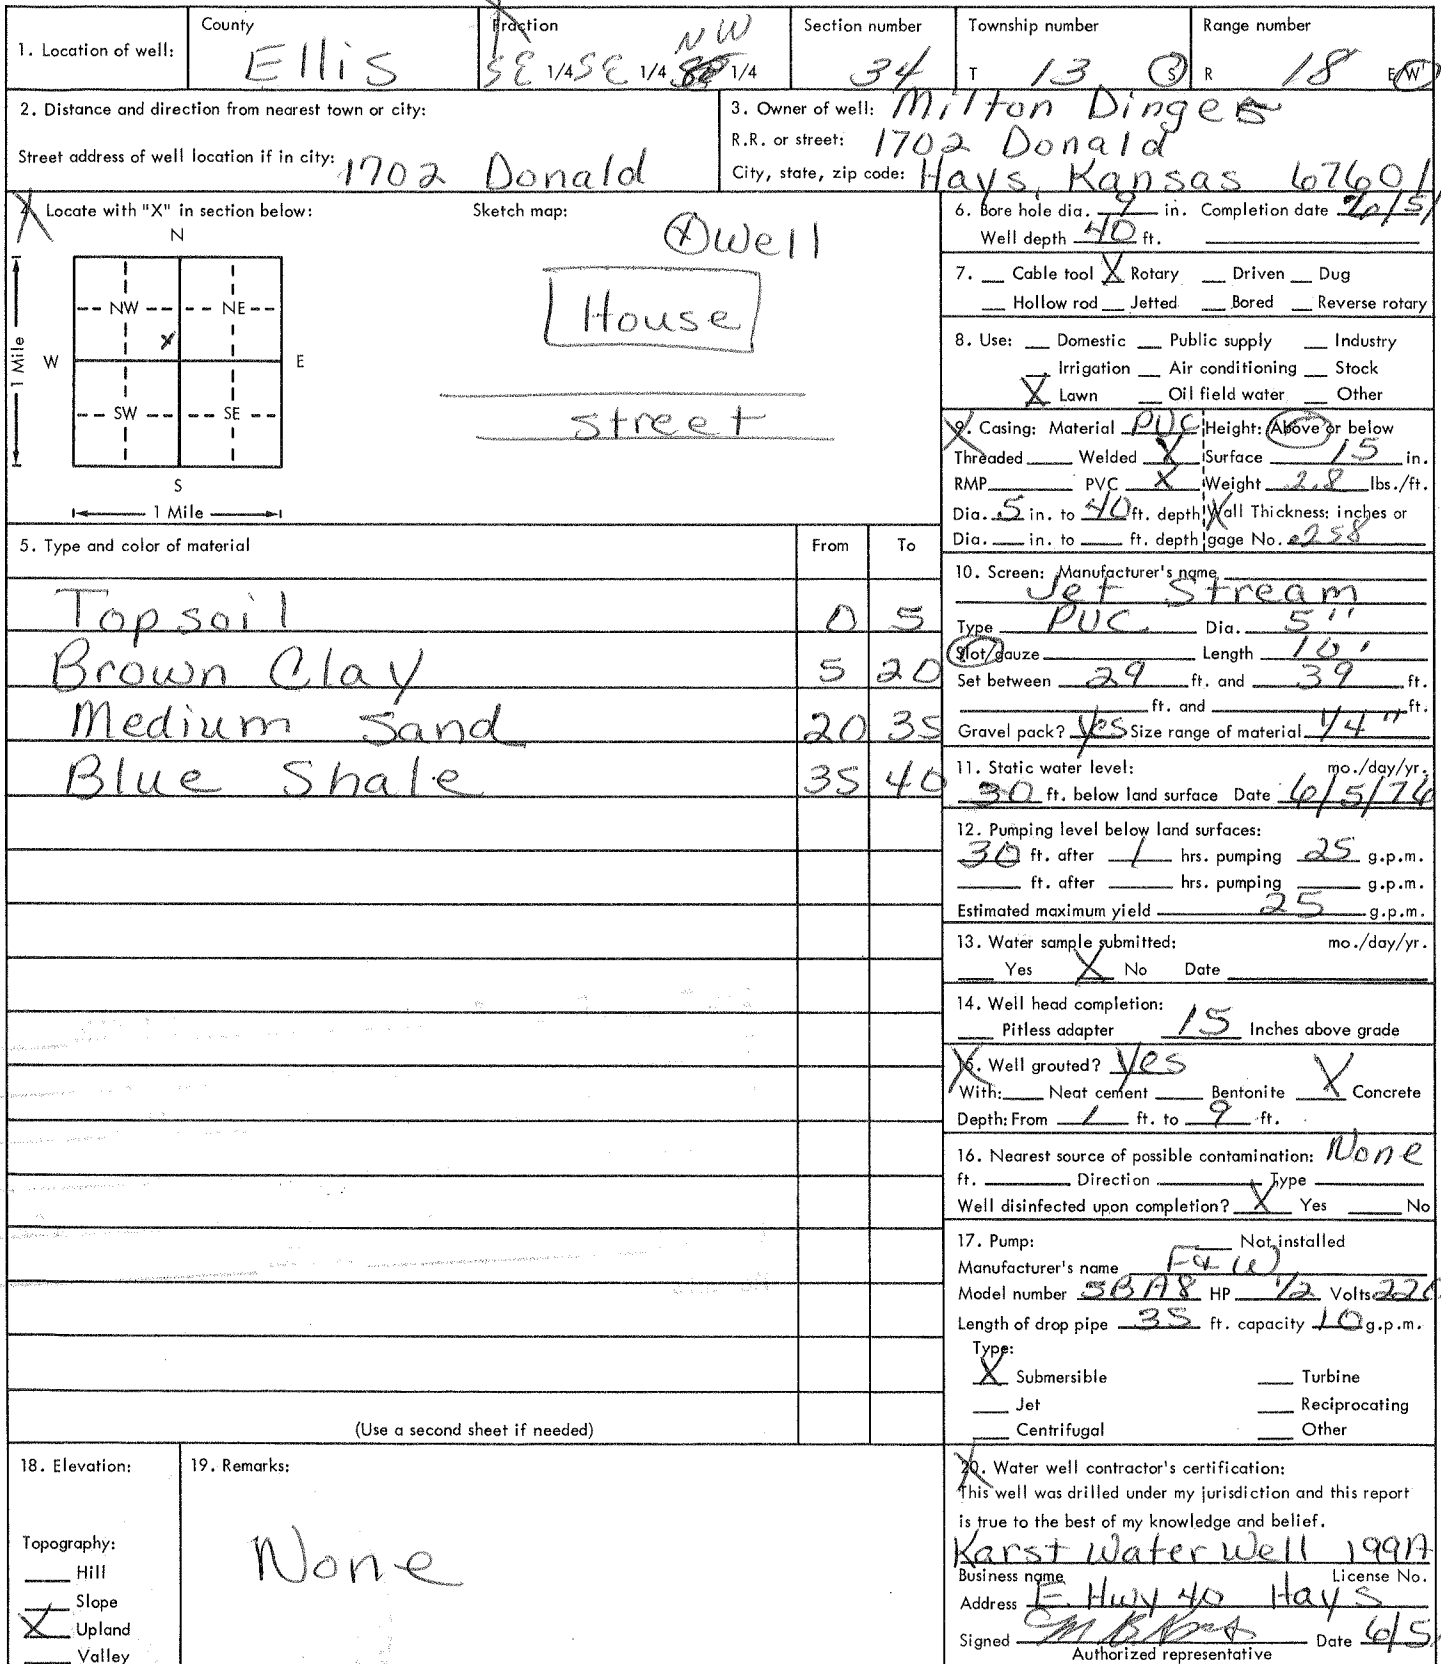 1. Location of well: County Ellis Fraction SE 1/4 SE 1/4 NW 1/4 Section number 34 Township number T 13 S Range number R 18 E W
2. Distance and direction from nearest town or city:
Street address of well location if in city: 1702 Donald
3. Owner of well: Milton Dinges
R.R. or street: 1702 Donald
City, state, zip code: Hays, Kansas 67601
4. Locate with "X" in section below: Sketch map:
N
NW NE
W X E
SW SE
S
1 Mile
1 Mile
X Well
House
Street
5. Type and color of material From To
Topsoil 0 5
Brown Clay 5 20
Medium Sand 20 35
Blue Shale 35 40
(Use a second sheet if needed)
6. Bore hole dia. 9 in. Completion date
Well depth 40 ft.
7. Cable tool X Rotary Driven Dug
Hollow rod Jetted Bored Reverse rotary
8. Use: Domestic Public supply Industry
Irrigation Air conditioning Stock
X Lawn Oil field water Other
9. Casing: Material PVC Height: Above or below
Threaded Welded X Surface 15 in.
RMP PVC X Weight 2.8 lbs./ft.
Dia. 5 in. to 40 ft. depth Wall Thickness: inches or
Dia. in. to ft. depth gage No. .258
10. Screen: Manufacturer's name
Jet Stream
Type PVC Dia. 5"
Slot/gauze Length 10'
Set between 29 ft. and 39 ft.
ft. and ft.
Gravel pack? Yes Size range of material 1/4"
11. Static water level: mo./day/yr.
30 ft. below land surface Date 6/5/76
12. Pumping level below land surfaces:
30 ft. after 1 hrs. pumping 25 g.p.m.
ft. after hrs. pumping g.p.m.
Estimated maximum yield 25 g.p.m.
13. Water sample submitted: mo./day/yr.
Yes X No Date
14. Well head completion:
Pitless adapter 15 Inches above grade
15. Well grouted? Yes
With: Neat cement Bentonite X Concrete
Depth: From 1 ft. to 9 ft.
16. Nearest source of possible contamination: None
ft. Direction Type
Well disinfected upon completion? X Yes No
17. Pump: Not installed
Manufacturer's name F & W
Model number 5BA8 HP 1/2 Volts 220
Length of drop pipe 35 ft. capacity 10 g.p.m.
Type:
X Submersible Turbine
Jet Reciprocating
Centrifugal Other
18. Elevation:
Topography:
Hill
Slope
X Upland
Valley
19. Remarks:
None
20. Water well contractor's certification:
This well was drilled under my jurisdiction and this report
is true to the best of my knowledge and belief.
Karst Water Well 199A
Business name License No.
Address E. Hwy 40 Hays
Signed Date 6/5
Authorized representative